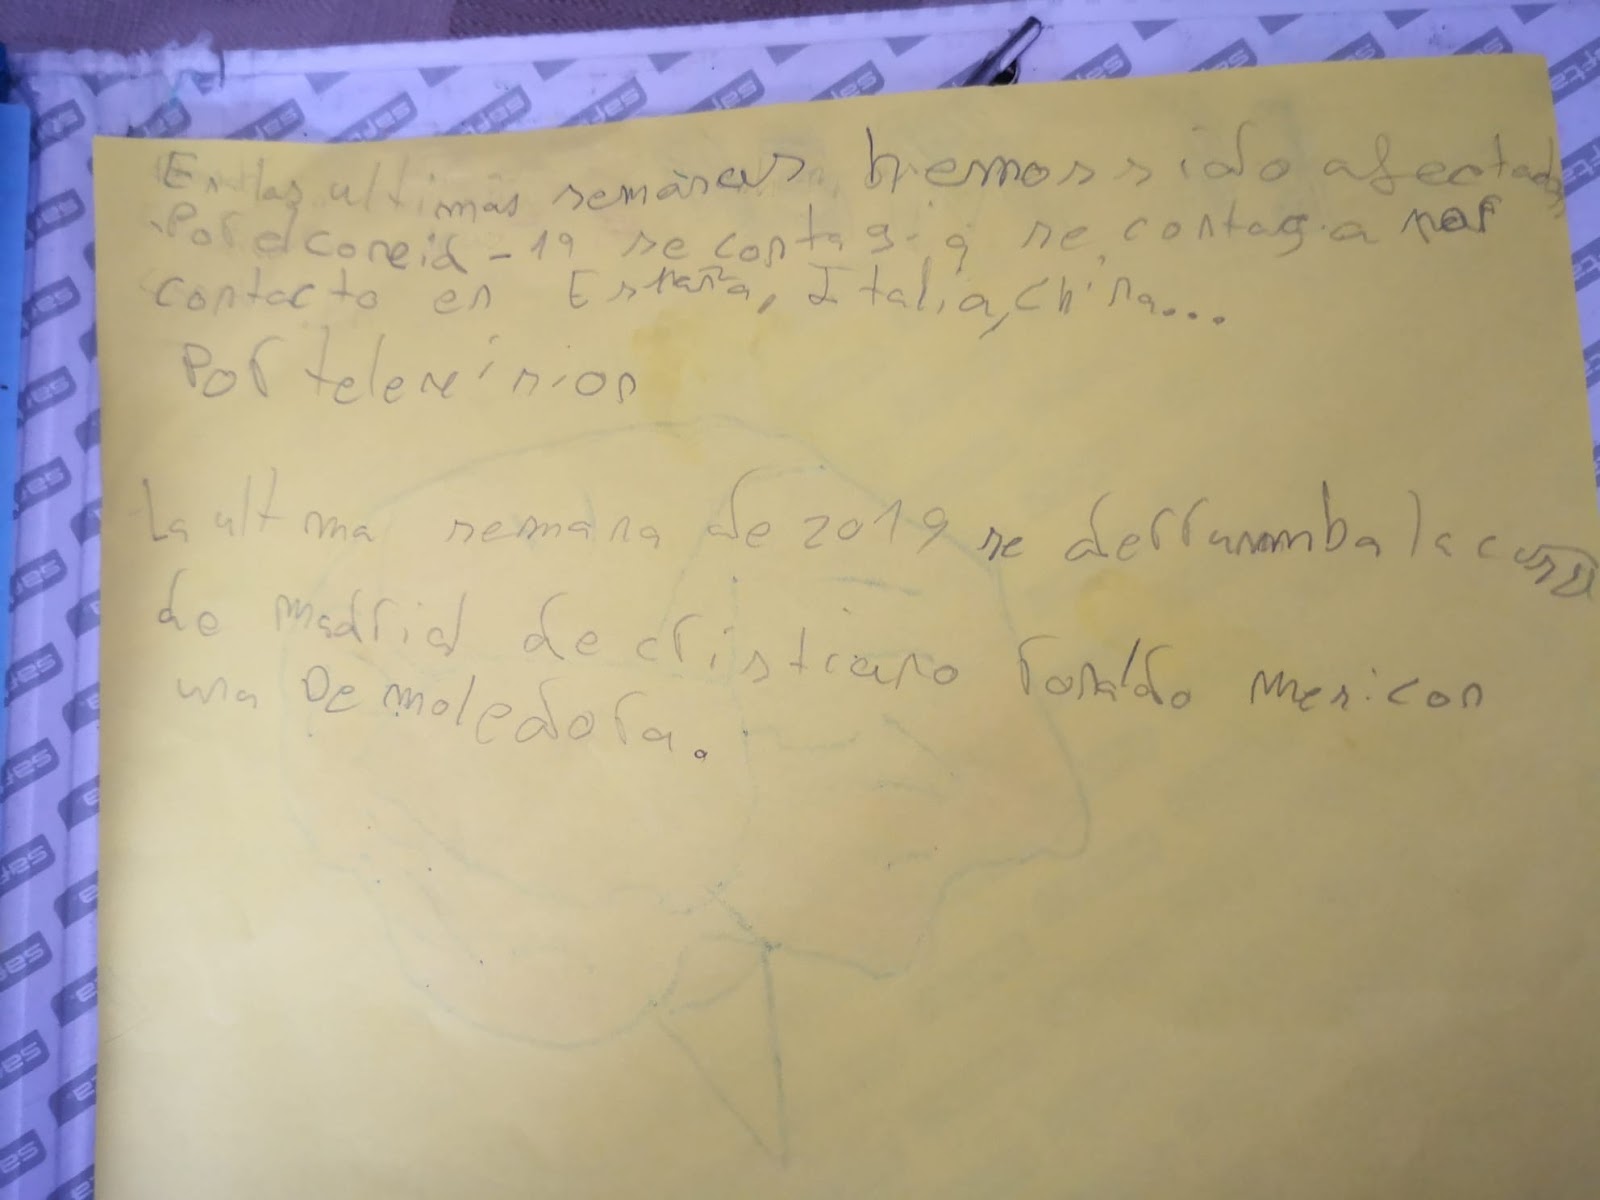 En las ultimas semanas hemos sido afectados
Por el coveid-19 se contagia se contagia por
contacto en España, Italia, china...
Por televísion
La ultima semana de 2019 se derrunmba la casa
de madrid de cristiano ronaldo mesi con
una Demoledora.
safta